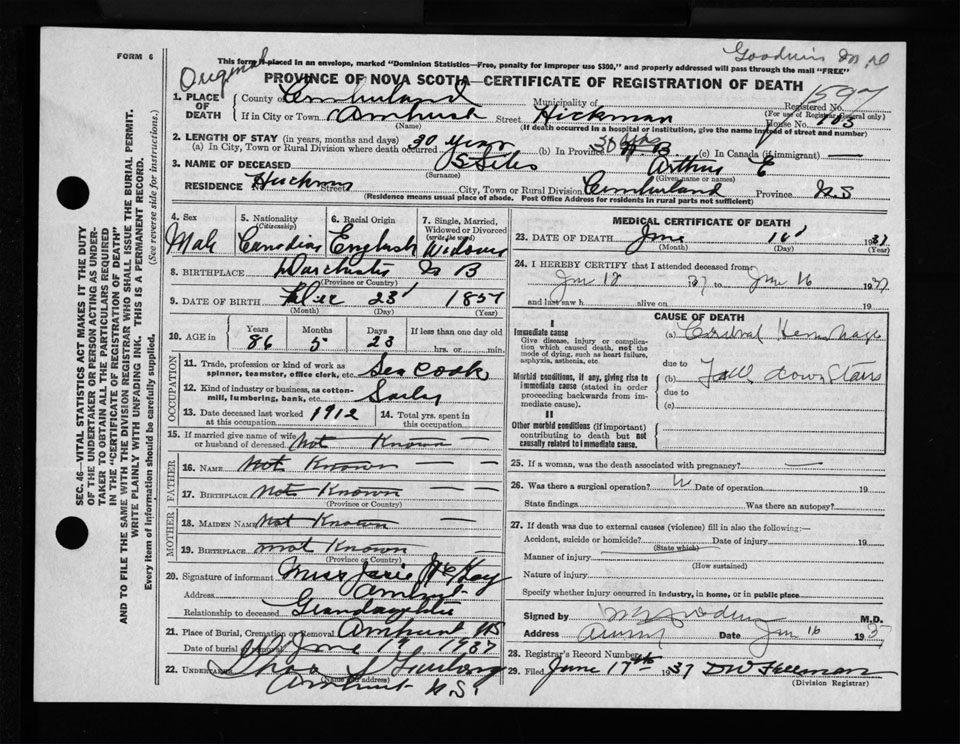 FORM 6
Goodwin M D
Original
This form if placed in an envelope, marked "Dominion Statistics—Free, penalty for improper use $300," and properly addressed will pass through the mail "FREE"
PROVINCE OF NOVA SCOTIA—CERTIFICATE OF REGISTRATION OF DEATH
1. PLACE OF DEATH
County of Cumberland Municipality of Registered No.
(For use of Registrar General only)
If in City or Town Amherst Street Hickman House No.
(Name) (If death occurred in a hospital or institution, give the name instead of street and number)
2. LENGTH OF STAY (in years, months and days)
(a) In City, Town or Rural Division where death occurred 30 Years (b) In Province 30 (c) In Canada (if immigrant) —
3. NAME OF DECEASED Arthur E
(Surname) (Given name or names)
RESIDENCE Hickman Street City, Town or Rural Division Cumberland Province N.S
(Residence means usual place of abode. Post Office Address for residents in rural parts not sufficient)
4. Sex Male
5. Nationality (Citizenship) Canadian
6. Racial Origin English
7. Single, Married, Widowed or Divorced (write the word) Widower
8. BIRTHPLACE Dorchester N B
(Province or Country)
9. DATE OF BIRTH 23 185
(Month) (Day) (Year)
10. AGE in Years 86 Months 5 Days 23 If less than one day old hrs. or min.
OCCUPATION
11. Trade, profession or kind of work as spinner, teamster, office clerk, etc. Sea Cook
12. Kind of industry or business, as cotton-mill, lumbering, bank, etc.
13. Date deceased last worked at this occupation 1912
14. Total yrs. spent in this occupation
15. If married give name of wife or husband of deceased Not Known —
FATHER
16. NAME Not Known — —
17. BIRTHPLACE Not Known — —
(Province or Country)
MOTHER
18. MAIDEN NAME Not Known —
19. BIRTHPLACE Not Known
(Province or Country)
20. Signature of informant
Address Amherst
Relationship to deceased Grandaughter
21. Place of Burial, Cremation or Removal Amherst NS
Date of burial or removal June 1937
22. UNDERTAKER
(Name and address)
Amherst N.S.
MEDICAL CERTIFICATE OF DEATH
23. DATE OF DEATH June 16 1937
(Month) (Day)
24. I HEREBY CERTIFY that I attended deceased from
to Jun 16 1937
and last saw h alive on 19
CAUSE OF DEATH
I
Immediate cause
Give disease, injury or complication which caused death, not the mode of dying, such as heart failure, asphyxia, asthenia, etc.
(a) Cerebral Hemorrhage
due to
Morbid conditions, if any, giving rise to immediate cause (stated in order proceeding backwards from immediate cause).
(b) Fall down Stairs
due to
(c)
II
Other morbid conditions (if important) contributing to death but not causally related to immediate cause.
25. If a woman, was the death associated with pregnancy? —
26. Was there a surgical operation? Date of operation 19
State findings Was there an autopsy?
27. If death was due to external causes (violence) fill in also the following:—
Accident, suicide or homicide? Date of injury 19
(State which)
Manner of injury
(How sustained)
Nature of injury
Specify whether injury occurred in industry, in home, or in public place
Signed by M.D.
Address Date Jun 16 1937
28. Registrar's Record Number
29. Filed June 17th 1937
(Division Registrar)
SEC. 46—VITAL STATISTICS ACT MAKES IT THE DUTY
OF THE UNDERTAKER OR PERSON ACTING AS UNDER-
TAKER TO OBTAIN ALL THE PARTICULARS REQUIRED
IN THE "CERTIFICATE OF REGISTRATION OF DEATH"
AND TO FILE THE SAME WITH THE DIVISION REGISTRAR WHO SHALL ISSUE THE BURIAL PERMIT.
WRITE PLAINLY WITH UNFADING INK. THIS IS A PERMANENT RECORD.
Every item of information should be carefully supplied. (See reverse side for instructions.)